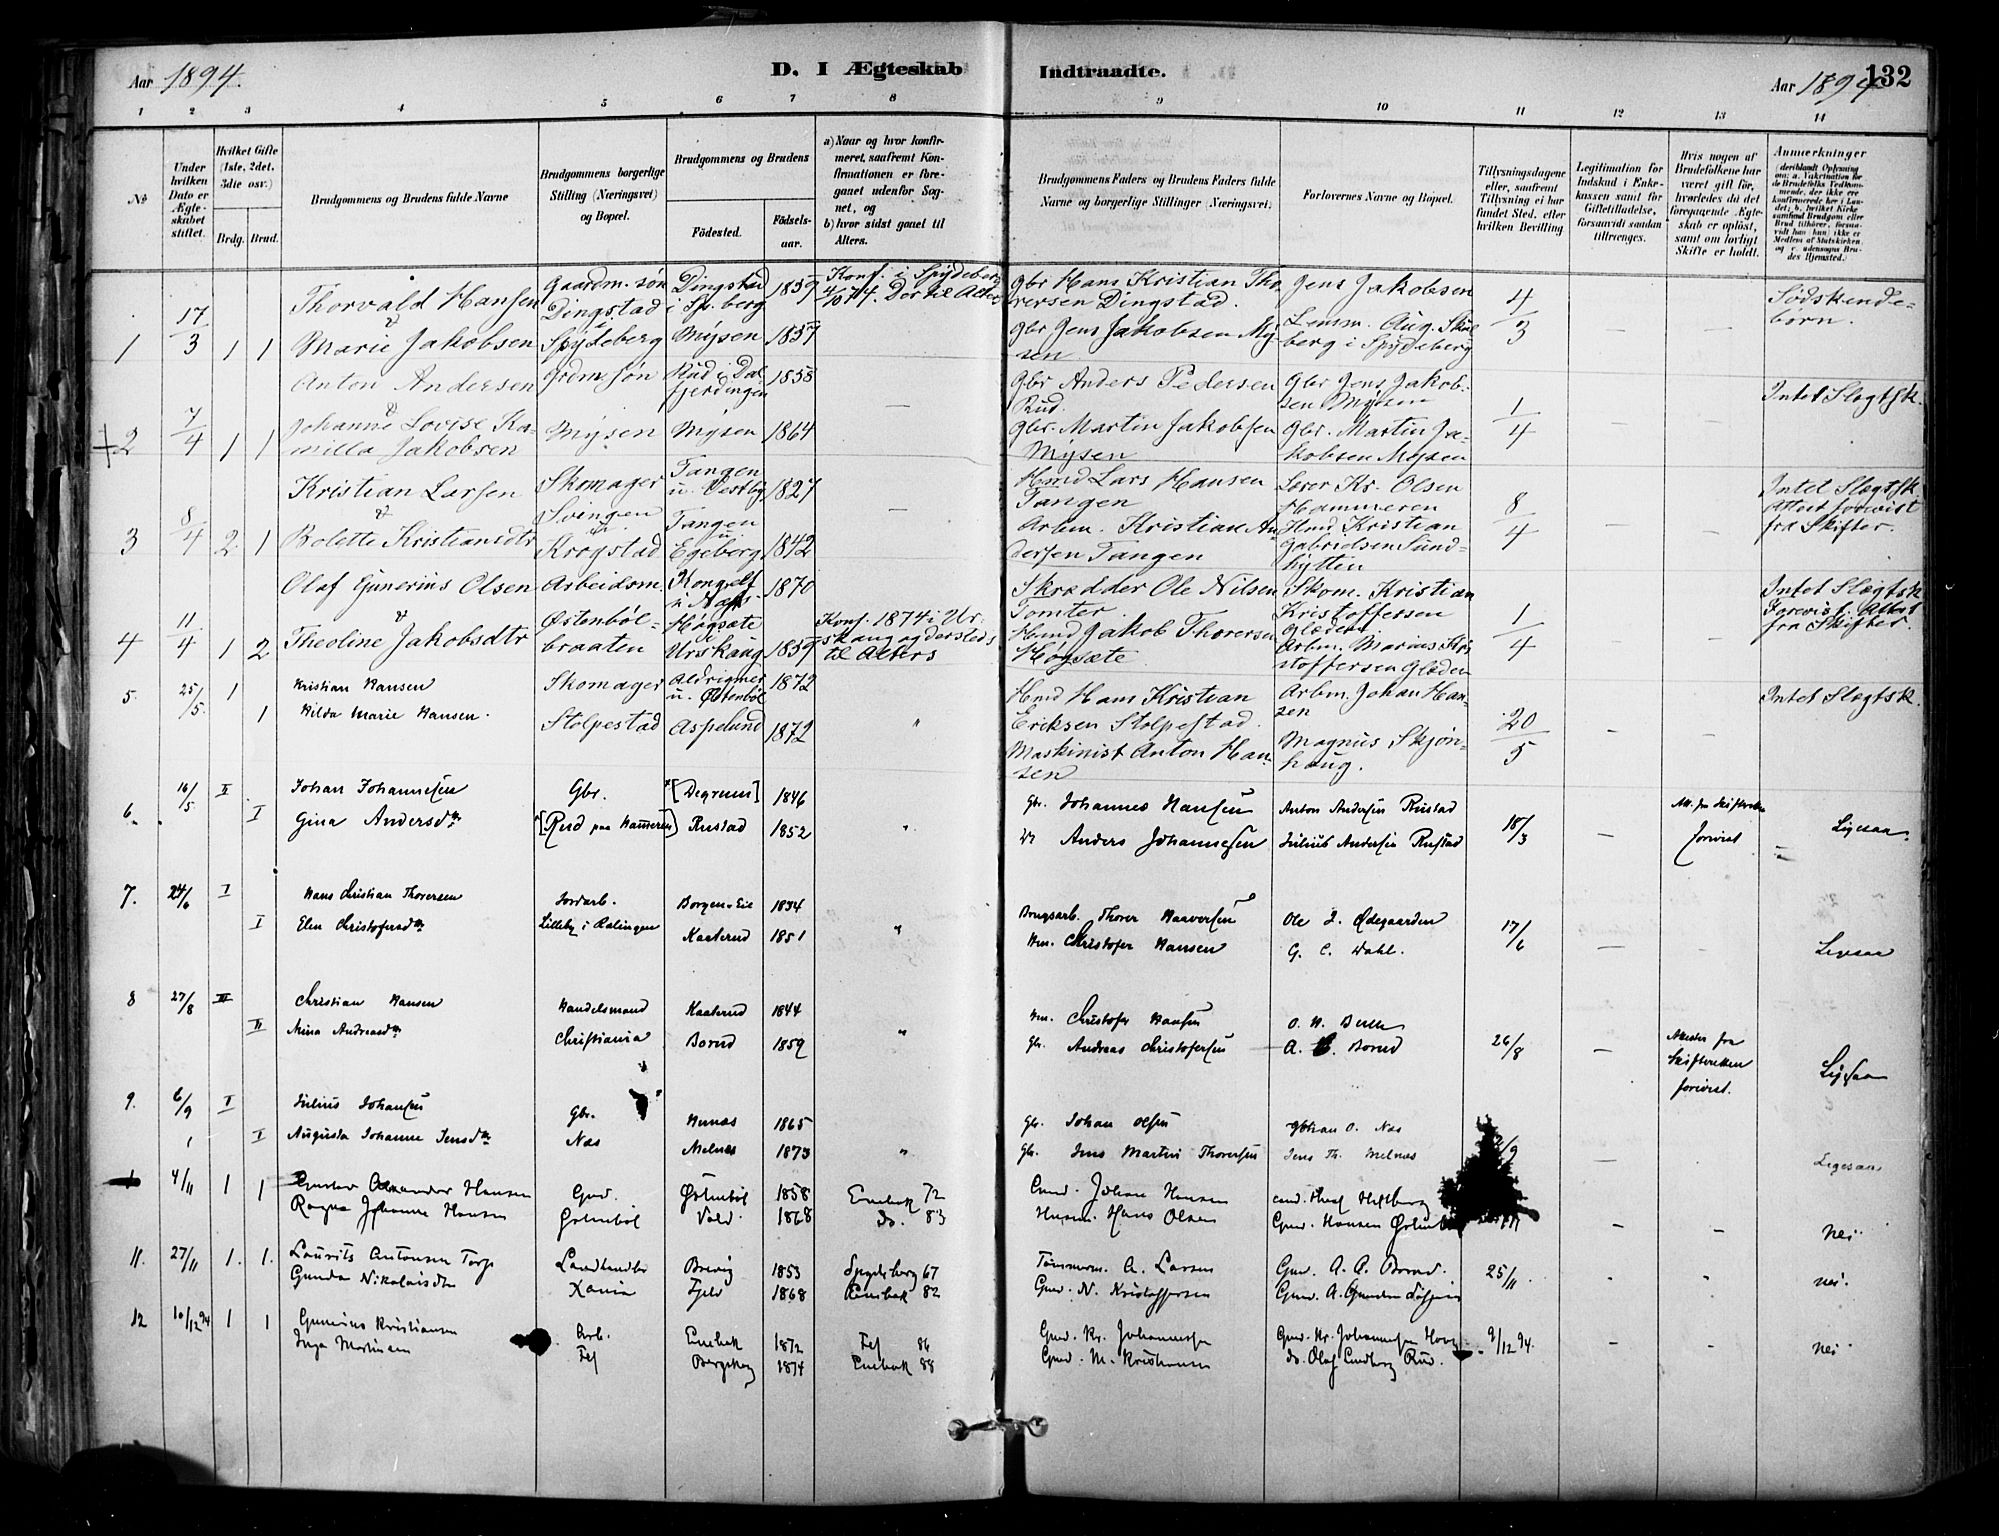 Aar 1894. D. I Ægteskab Indtraadte. Aar 1894 132
1 2 3 4 5 6 7 8 9 10 11 12 13 14
No
Under hvilken Dato er Ægteskabet stiftet.
Hvilket Gifte (1ste, 2det, 3die osv.)
Brdg. Brud.
Brudgommens og Brudens fulde Navne
Brudgommens borgerlige Stilling (Næringsvei) og Bopæl.
Brudgommens og Brudens
Fødested. Fødselsaar.
a) Naar og hvor konfirmeret, saafremt Konfirmationen er foregaaet udenfor Sognet, og
b) hvor sidst gaaet til Alters.
Brudgommens Faders og Brudens Faders fulde Navne og borgerlige Stillinger (Næringsvei)
Forlovernes Navne og Bopæl.
Tillysningsdagene eller, saafremt Tillysning ei har fundet Sted, efter hvilken Bevilling.
Legitimation for Indskud i Enkekassen samt for Giftetilladelse, forsaavidt saadan tiltrænges.
Hvis nogen af Brudefolkene har været gift før, hvorledes da det foregaaende Ægteskab er opløst, samt om lovligt Skifte er holdt.
Anmerkninger
1 17/3 1 1
Thorvald Hansen
&
Marie Jakobsen
Gaardm. søn
Dingstad
i
Spydeberg
Dingstad
i Sp.berg
1859
Mysen 1857
Konf. i Spydeberg
4/10 74. Der til Alters
Gbr Hans Kristian Tho-
rersen Dingstad.
Gbr Jens Jakobsen My-
sen.
Jens Jakobsen
Lensm. Aug. Skul
berg i Spydeberg
4/3 — —
Sødskende-
børn.
2 7/4 1 1
Anton Andersen
&
Johanne Lovise Ka-
milla Jakobsen
Grdm. søn
Mysen
Rud i Dal
fjerdingen
1858
Mysen 1864
—
Gbr Anders Pedersen
Rud.
Gbr. Martin Jakobsen
Mysen
Gbr Jens Jakob-
sen Mysen
Gbr. Martin Ja-
kobsen Mysen
1/4 — —
Intet Slegtsk.
3 8/4 2. 1
Kristian Larsen
&
Bolette Kristiansdtr
Skomager
Svengen
Krogstad
Tangen
u. Vestby
1827
Tangen
u
Egeberg 1842
—
Hmd Lars Hansen
Tangen
Arbm. Kristian An
dersen Tangen
Kr. Olsen
Hammeren
Hmd Kristian
Gabrielsen Sund-
hytten
8/4 — —
Intet Slegtsk
Attest forevist
fra Skifter.
4 11/4 1 2
Olaf Gunerius Olsen
&
Theoline Jakobsdtr
Arbeidsm.
Østenböl-
braaten
1870
Høgsæte
i
Urskaug 1859
Konf. 1874 i Ur-
skaug og dersteds
til Alters
Skrædder Ole Nilsen
Tomter.
Hmd Jakob Thorersen
Høgsæte
Skom. Kristian
Kristoffersen
Glæden
Arbm. Marius Kri
stoffersen Glæden
1/4 — —
Intet Slegtsk
Forevist Attest
fra Skifter.
5. 25/5. 1 1
Kristian Hansen
Hilda Marie Hansen.
Skomager
Stolpestad
u. Østenböl 1872
Aspelund 1872
"
Hmd Hans Kristian
Eriksen Stolpestad.
Maskinist Anton Han-
sen
Arbm. Johan Han-
sen
Magnus Skjøn-
haug.
20/5 — —
Intet Slegtsk.
6. 16/5 II I
Johan Johannesen
Gina Andersdtr
Gbr.
[Rud paa Hammeren]
[Degrum] 1846
Rustad 1852
"
Gbr. Johannes Hansen
Anders Johannesen
Anton Andersen Rustad
Julius Andersen Rustad
18/3 —
forevist
Ligesaa
7. 24/6 I I
Hans Christian Thorersen
Elen Christofersdtr
Jordarb.
Lilleby i Rælingen
Borgen-Eie 1834
Kaaterud 1851
"
Brugsarb. Thorer Haaversen
Hm. Christofer Hansen
Ole J. Ødegaarden
G. C. Dahl.
17/6 — —
Ligesaa
8 27/8 III II
Christian Hansen
Mina Andreasdtr
Handelsmand
Christiania
Kaaterud 1844
Borud 1859
"
Hm. Christofer Hansen
Gbr. Andreas Christofersen
O. H.
A. Borud
26/8 —
Attester fra
Skifteretten
forevist.
Ligesaa
9. 6/9 I I
Julius Johansen
Augusta Johanne Jensdtr
Gbr.
Næs
1865
Melnæs 1873
"
Gbr. Johan Olsen
Gbr. Jens Martin Thorersen
Johan O. Næs
Jens Th. Melnæs
2/9 —
Ligesaa
4/11 1 1
Gustav Alexander Hansen
Ragna Johanne Hansen
Gmd.
Østenböl 1858
Vold. 1868
Enebak 72
do. 83
Gmd. Johan Hansen
Husm. Hans Olsen
Gmd. Hansen
- -
nei
11. 27/11 1. 1.
Laurits Antonsen Torp
Gunda Nikolaisdtr
Landhandler
Xania
1853
Fjeld 1868
Spydeberg 67
Enebak 82
Tømmerm. A. Larsen
Gmd. N. Kristoffersen
Gmd. A. Borud.
25/11. - "
nei.
12 10/12 94 1 1
Gunerius Kristiansen
Inga Martinsen
Arb.
Enebak 1872
1874
86
Enebak 88
Gmd. Kr. Johannessen
Gmd. M. Kristiansen
Gmd. Kr. Johannesen
do. Olaf Lundberg Rud.
9/12 94. - -
nei